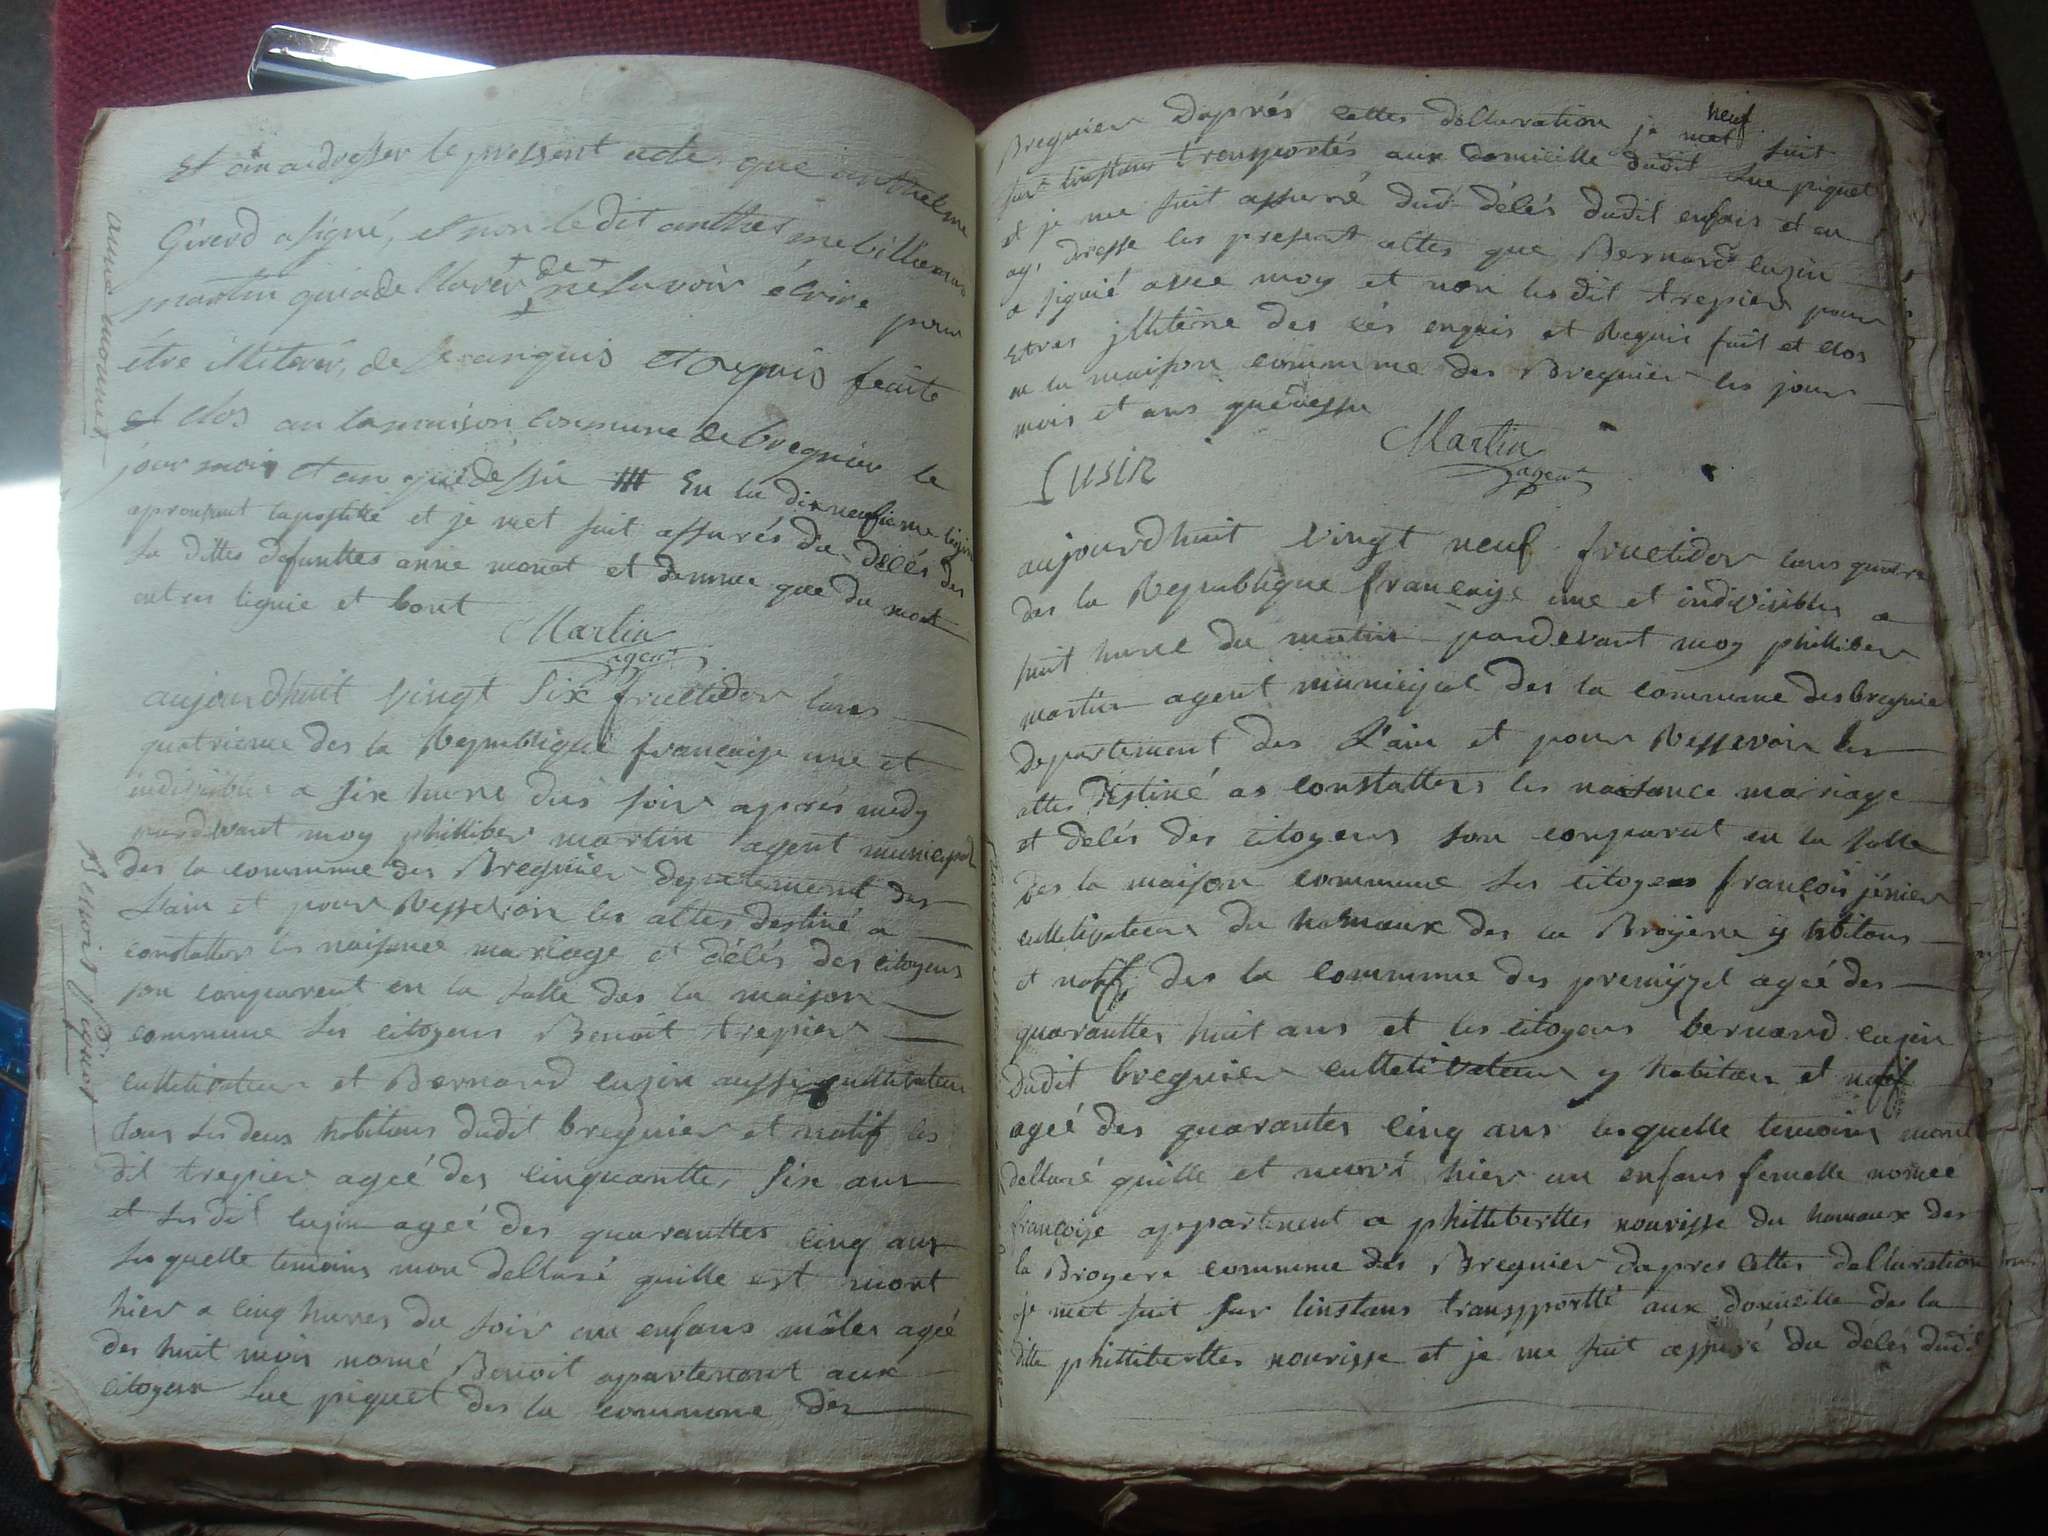 Et an adresser le pressent acte, que anthelme
Gérerd a signé, et non le dit anthelme billiemas
martin qui a de Claréré de ne savoir écrire pour
étre illiteré, de se anquis et requis faite
et clos an la maison commune de bregnier le
jour mois et an que dé ssu En la dix neufieme ligne
aprouvant lapostille et je met suit assurés du délés des
la dittes defunttes anne monet et demme que du mot
outres lignie et bont
Martin
agent
anne monnet
aujourdhuit vingt six fructidor lans
quatrieme des la Republique francaise une et
indivisibles a six hure dus soir aprés medy
pardevant moy philliber martin agent municipal
des la commune des Bregnier departement des
Lain et pour Ressevoir les attes destiné a
constatter les naisence mariage et délés des citoyens
son conparent en la salle des la maison
commune les citoyens Benoit trepier
culletivateur et Bernard cuzin aussi cultivateur
tous les deux habitans dudit bregnier et natif les
dit trepier ageé des cinquantte six ans
et les dit cuzin ageé des quaranttes cinq ans
les quelle temoins mon dellaré quille est mort
hier a cinq hures du soir un enfans mâles ageé
des huit mois nomé Benoit apartenant aux
citoyen Luc piquet des la commune des
Benoit Piquet
Bregnier Daprés cettes dellaration je met neuf suit
sur linstans transportés aux domicille dudit Luc piquet
et je me suit assurré dud délés dudit enfais et en
ay, dresse les present attes que Bernard cuzin
a signié avec moy et non les dit trepier pour
Etres jlliteine des cés enquis et Requis fait et clos
en la maison commune des Bregnier les jour
mois et ans que dessu
Martin
agent
Cusin
aujourdhuit vingt neuf fructidor lans quatre
des la Republique francaise une et indivisibles a
huit hure du matin pardevant moy philliber
martin agent municipal des la commune des bregnier
departement des L'ain et pour Ressevoir les
attes destiné as constatters les naisance mariage
et délés des citoyens son conparut en la salle
des la maison commune les citoyens françois jénier
culletivateur du hamaux des la Broyere y hbitans
et natif des la commune des premiyzel ageé des
quaranttes huit ans et les citoyens bernard cuzin
dudit bregnier culletivateur y habitan et natif
ageé des quarantes cinq ans les quelle temoins mont
dellaré quille et mort hier un enfans femelle nomeé
françoise appartenent a phillibertte nourisse du hamaux des
la Broyere commune des Bregnier dapres cettes dellaration
je met suit sur linstans transpportté aux domicille des la
ditte phillibertte nourisse et je me suit assuré du délés dudit